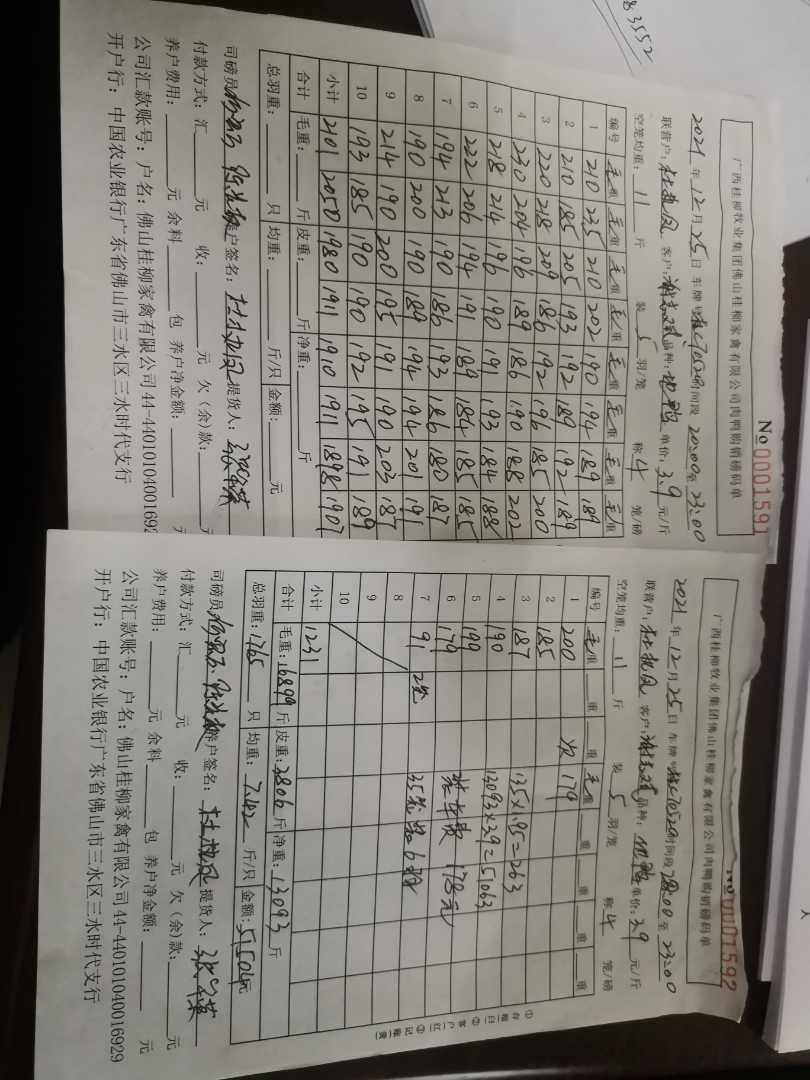 83552
广西桂柳牧业集团佛山桂柳家禽有限公司肉鸭购销磅码单
No 0001591
2021 年 12 月 25 日 车牌号 时间段 20:00 至 23:00
联营户: 客户: 品种: 单价: 3.9 元/斤
空笼均重: 11 斤 装 5 羽/笼 称 4 笼/磅
编号 毛重 毛重 毛重 毛重 毛重 毛重 毛重 毛重
1 210 225 210 202 190 194 189 189
2 210 185 205 193 192 189 192 189
3 220 218 209 186 192 196 185 200
4 230 204 196 189 186 190 188 202
5 218 214 196 190 191 193 184 188
6 222 206 194 191 189 184 185 185
7 194 213 190 186 193 186 180 187
8 190 200 190 184 194 194 201 191
9 214 190 200 195 191 190 203 187
10 193 185 190 190 192 195 191 189
小计 2101 2050 1980 1911 1910 1911 1898 1907
合计 毛重: 斤 皮重: 斤 净重: 斤
总羽重: 只 均重: 斤/只 金额: 元
司磅员: 养户签名: 提货人:
付款方式: 汇 元 收: 元 欠(余)款: 元
养户费用: 元 余料 包 养户净金额: 元
公司汇款账号: 户名: 佛山桂柳家禽有限公司 44-440101040016929
开户行: 中国农业银行广东省佛山市三水区三水时代支行
广西桂柳牧业集团佛山桂柳家禽有限公司肉鸭购销磅码单
No 0001592
2021 年 12 月 25 日 车牌号 时间段 20:00 至 23:00
联营户: 客户: 品种: 单价: 3.9 元/斤
空笼均重: 11 斤 装 5 羽/笼 称 4 笼/磅
编号 毛重 重 重 毛重 重 重 重 重
1 200 次 179
2 185
3 187 135×1.95=263
4 190 13093×3.9=51063
5 199
6 179 装车费 178元
7 91 2笼 35
8
9
10
小计 1231
合计 毛重: 16899 斤 皮重: 3806 斤 净重: 13093 斤
总羽重: 1765 只 均重: 7.42 斤/只 金额: 51504 元
司磅员: 养户签名: 提货人:
付款方式: 汇 元 收: 元 欠(余)款: 元
养户费用: 元 余料 包 养户净金额: 元
公司汇款账号: 户名: 佛山桂柳家禽有限公司 44-440101040016929
开户行: 中国农业银行广东省佛山市三水区三水时代支行
①存根(白) ②客户(红) ③记账(黄)